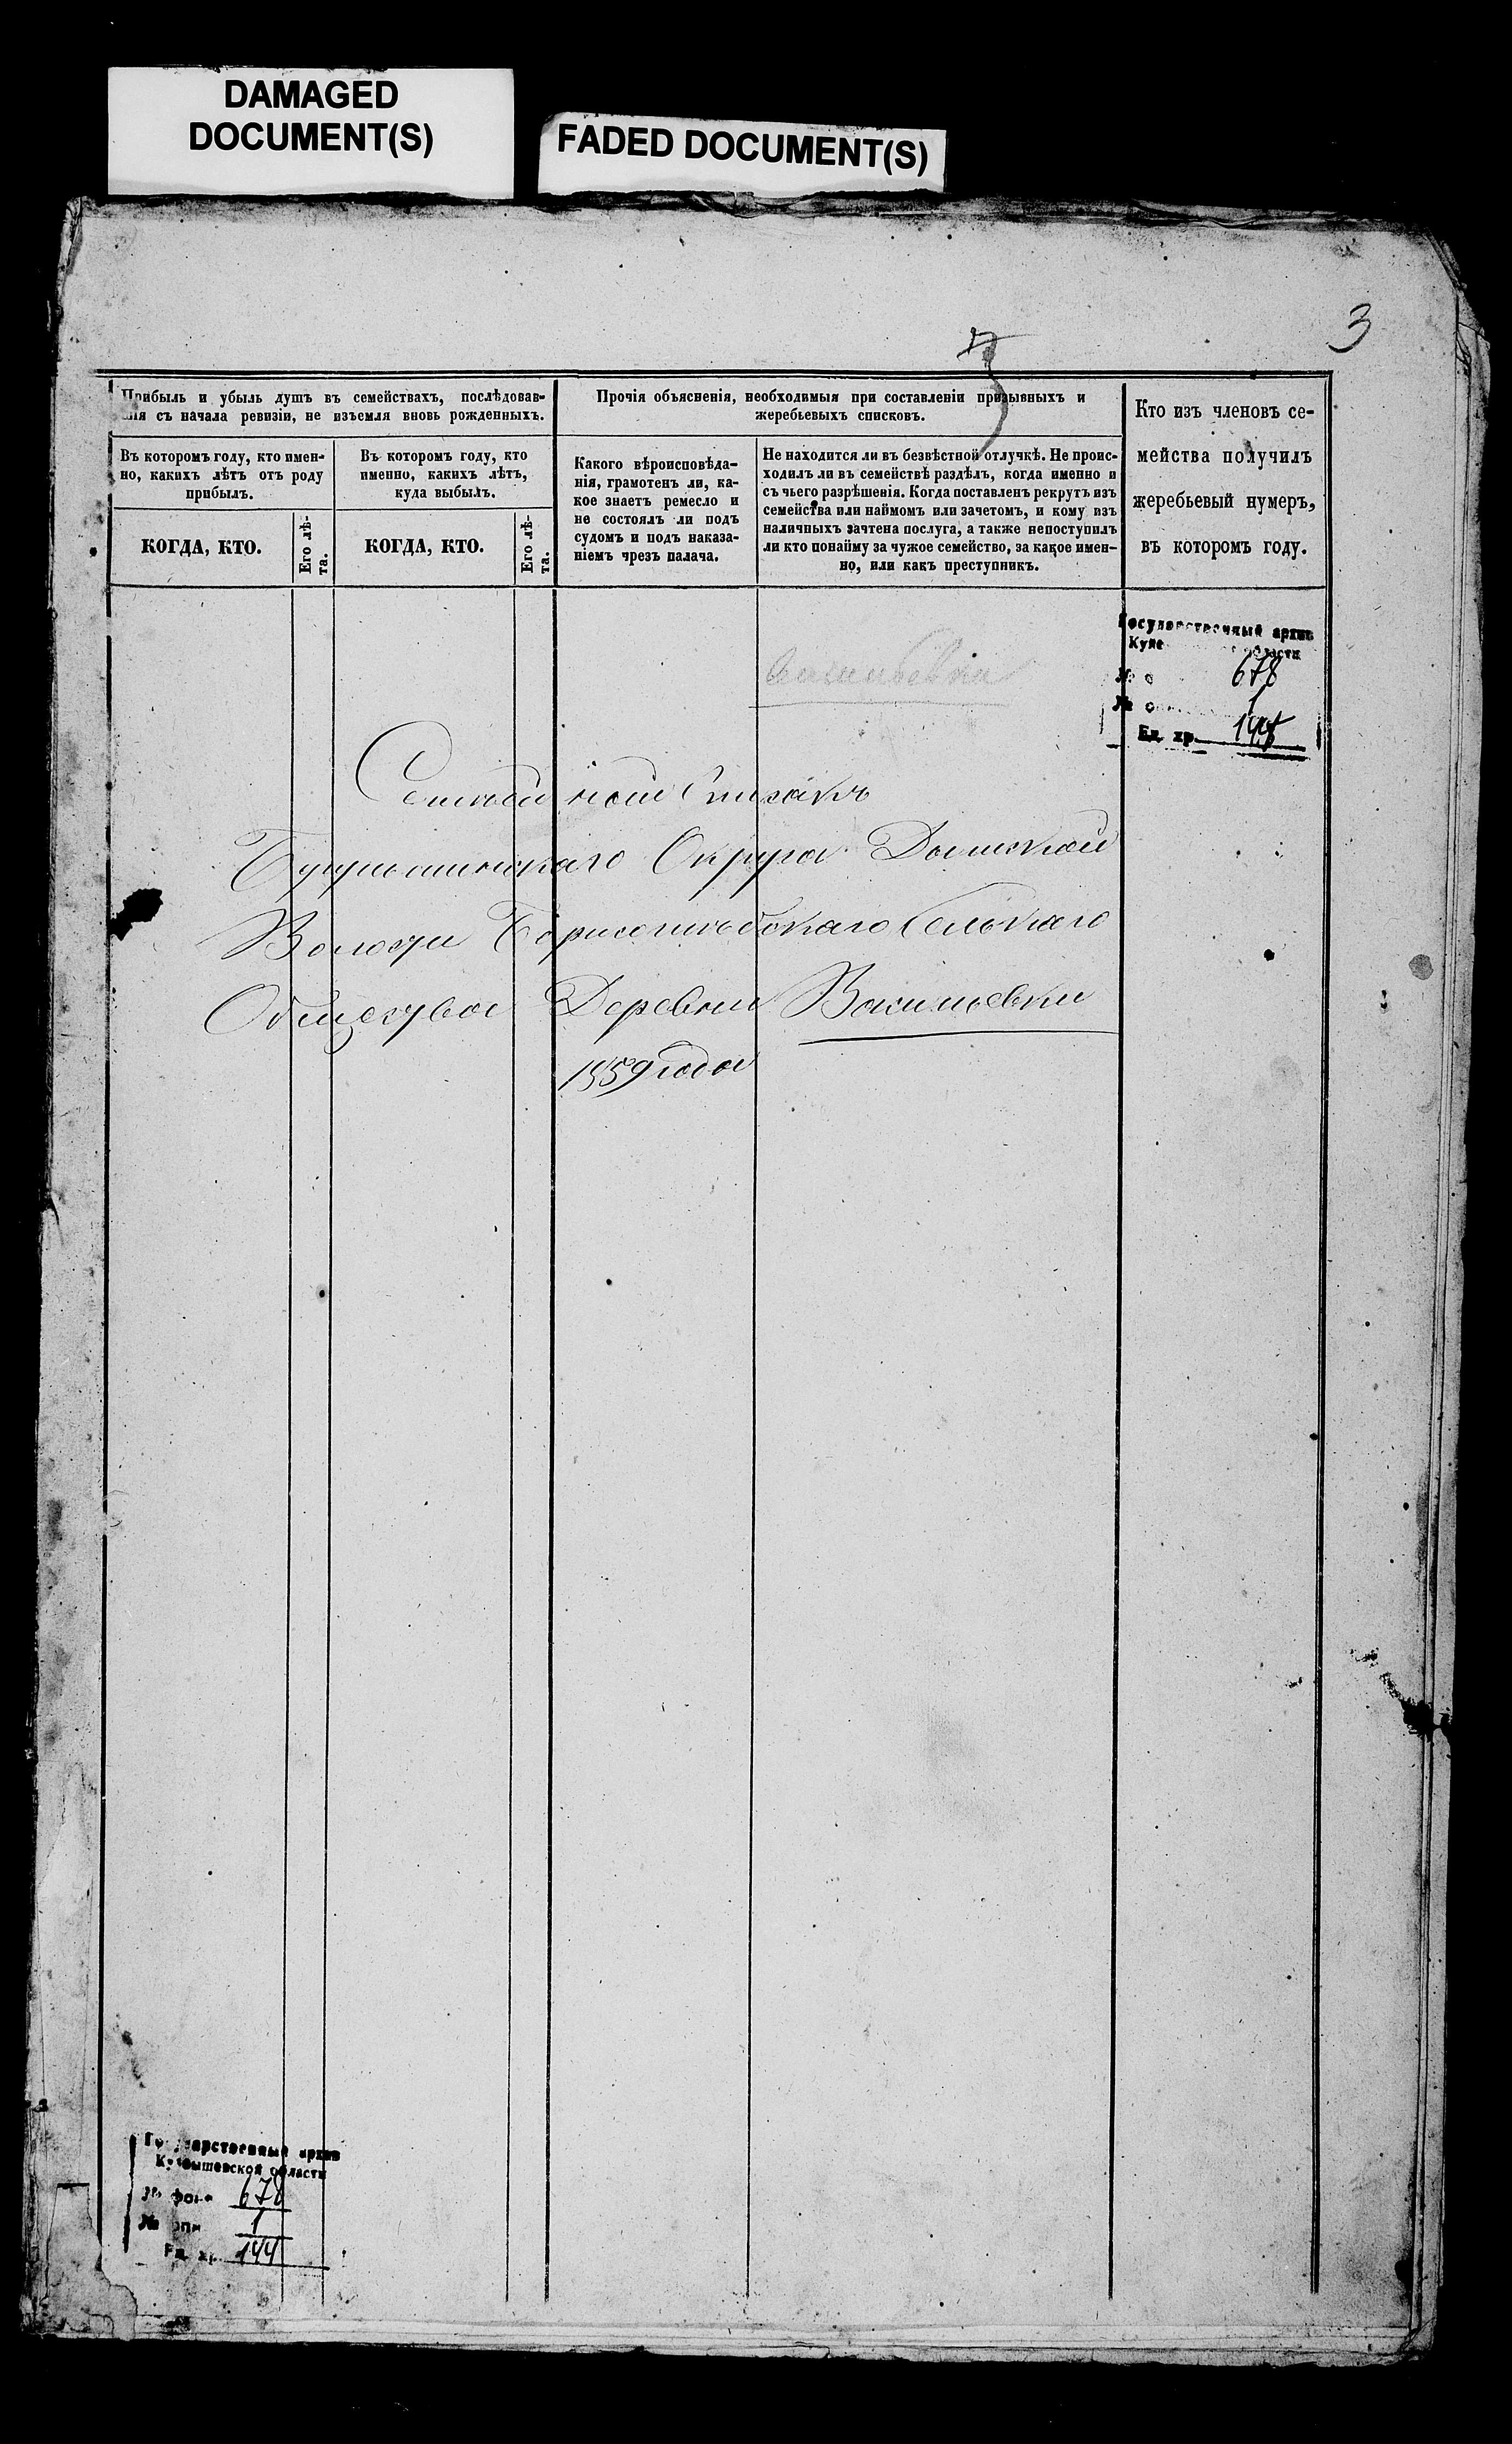 DAMAGED
DOCUMENT(S)
FADED DOCUMENT(S)
3
3
Прибыль и убыль душъ въ семействахъ, послѣдовав-
шія съ начала ревизіи, не изъемля вновь рожденныхъ.
Въ которомъ году, кто имен-
но, какихъ лѣтъ отъ роду
прибылъ.
Въ которомъ году, кто
именно, какихъ лѣтъ,
куда выбылъ.
КОГДА, КТО.
Его лѣ-
та.
КОГДА, КТО.
Его лѣ-
та.
Прочія объясненія, необходимыя при составленіи призывныхъ и
жеребьевыхъ списковъ.
Какого вѣроисповѣда-
нія, грамотенъ ли, ка-
кое знаетъ ремесло и
не состоялъ ли подъ
судомъ и подъ наказа-
ніемъ чрезъ палача.
Не находится ли въ безвѣстной отлучкѣ. Не проис-
ходилъ ли въ семействѣ раздѣлъ, когда именно и
съ чьего разрѣшенія. Когда поставленъ рекрутъ изъ
семейства или наймомъ или зачетомъ, и кому изъ
наличныхъ зачтена послуга, а также непоступилъ
ли кто понайму за чужое семейство, за какое имен-
но, или какъ преступникъ.
Кто изъ членовъ се-
мейства получилъ
жеребьевый нумеръ,
въ которомъ году.
Государственный архив
области
678
1
Ед. хр.
Васильевка
Семейной Списокъ
Бугульминскаго Округа Дымской
Волости Борисоглебскаго Сельскаго
Общества Деревни Васильевки
1859 года
Государственный архив
Куйбышевской области
№ фон 678
№ оп 1
Ед. хр. 144